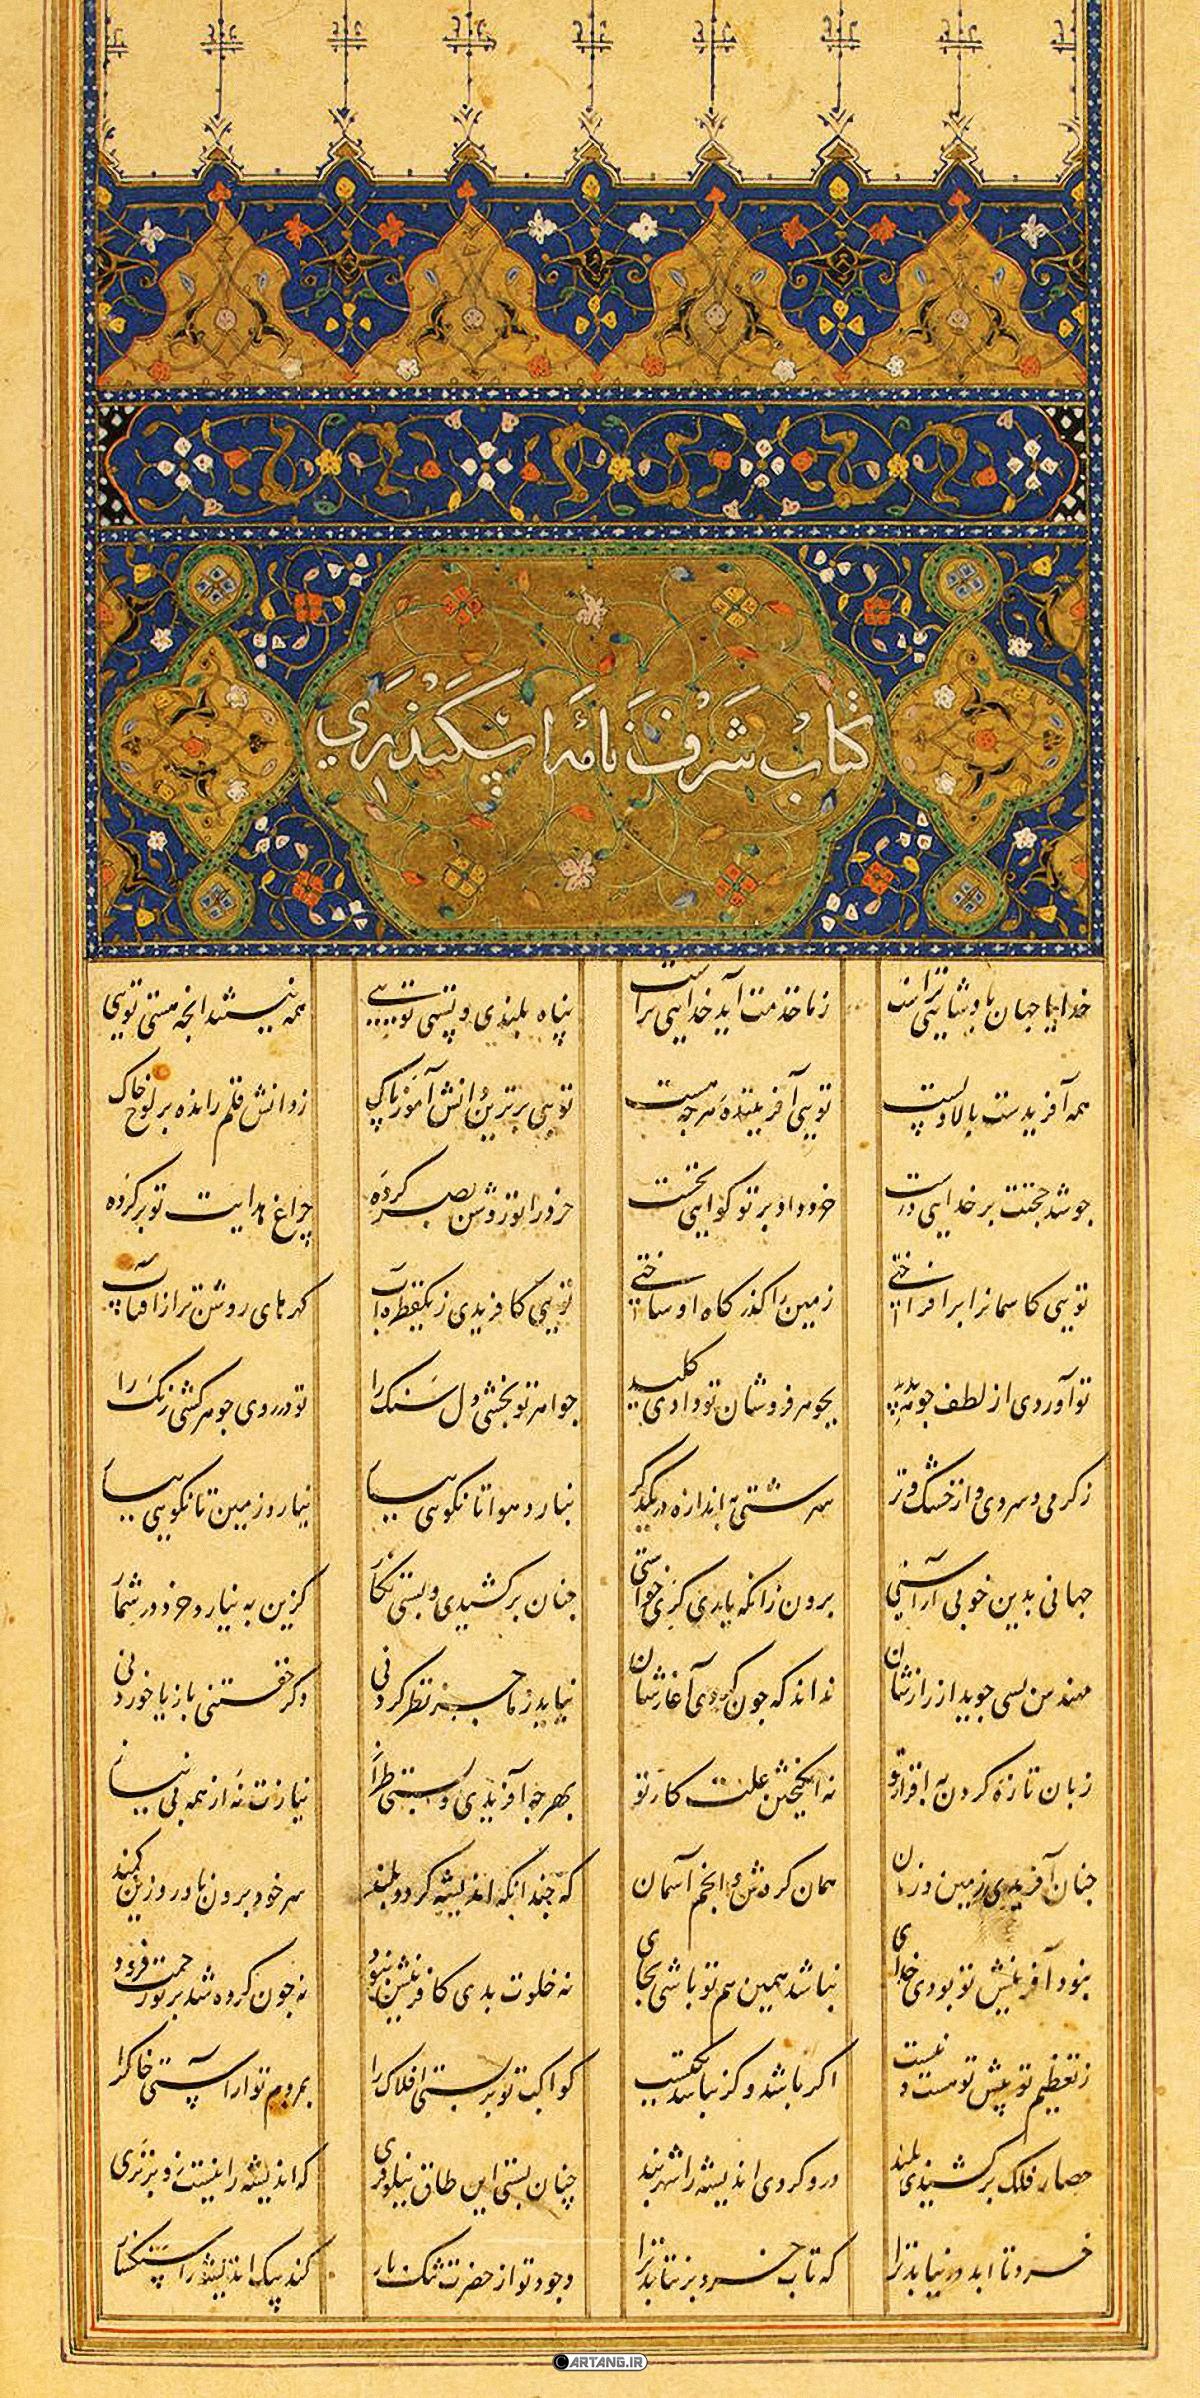 کتاب شرف نامهٔ اسکندری
خدایا جهان پادشایی تراست زما خذمت آید خدایی تراست پناه بلندی و پستی تویی همه نیستند انچه هستی تویی
همه آفریدست بالا و پست تویی آفرینندهٔ هرچه هست تویی برترین دانش آموز پاک ز دانش قلم رانده بر لوح خاک
جو شد حجتت بر خدایی درست خرد داد بر تو گوایی نخست خرد را تو روشن بصر کرده چراغ هدایت تو بر کرده
تویی کاسمانرا برافراختی زمین را گذرگاه او ساختی تویی کافریدی ز یک قطره آب گهرهای روشن تر از افتاب
تو آوردی از لطف جوهر پدید بجوهر فروشان تو دادی کلید جواهر تو بخشی دل سنک را تو در روی جوهر کشی رنک را
ز گرمی و سردی و از خشک و تر سرشتی به اندازه در یکدگر نبارد هوا تا نگویی ببار نیارد زمین تا نگویی بیار
جهانی بدین خوبی آراستی برون زانکه یاریگری خواستی جنان برکشیدی و بستی نگار که زین به نیارد خرد در شمار
مهندس بسی جوید از رازشان نداند که جون کردی آغازشان نیاید ز ما جز نظر کردنی دگر خفتنی باز یا خوردنی
زبان تازه کردن به اقرار تو نه انگیختن علت کار تو بهرجه آفریدی و بستی طراز نیازت نه از همه بی نیاز
جنان آفریدی زمین و زمان همان گردش و انجم آسمان که جندانکه اندیشه گردد بلند سر خود برون ناورد زین کمند
نبود آفرینش تو بودی خدای نباشد همین هم تو باشی بجای نه خلوت بدی کافرینش نبود نه جون کرده شد بر تو زحمت فزود
ز تعظیم تو پیش تو هست و نیست اگر باشد و گر نباشد یکیست کواکب تو بربستی افلاک را بمردم تو آراستی خاک را
حصار فلک برکشیدی بلند درو کردی اندیشه را شهربند چنان بستی این طاق نیلوفری که اندیشه را نیست زو برتری
خرد تا ابد در نیابد ترا که تاب خرد برنتابد ترا وجود تو از حضرت تنک بار کند پیک اندیشه را سنکسار
CARTANG.IR